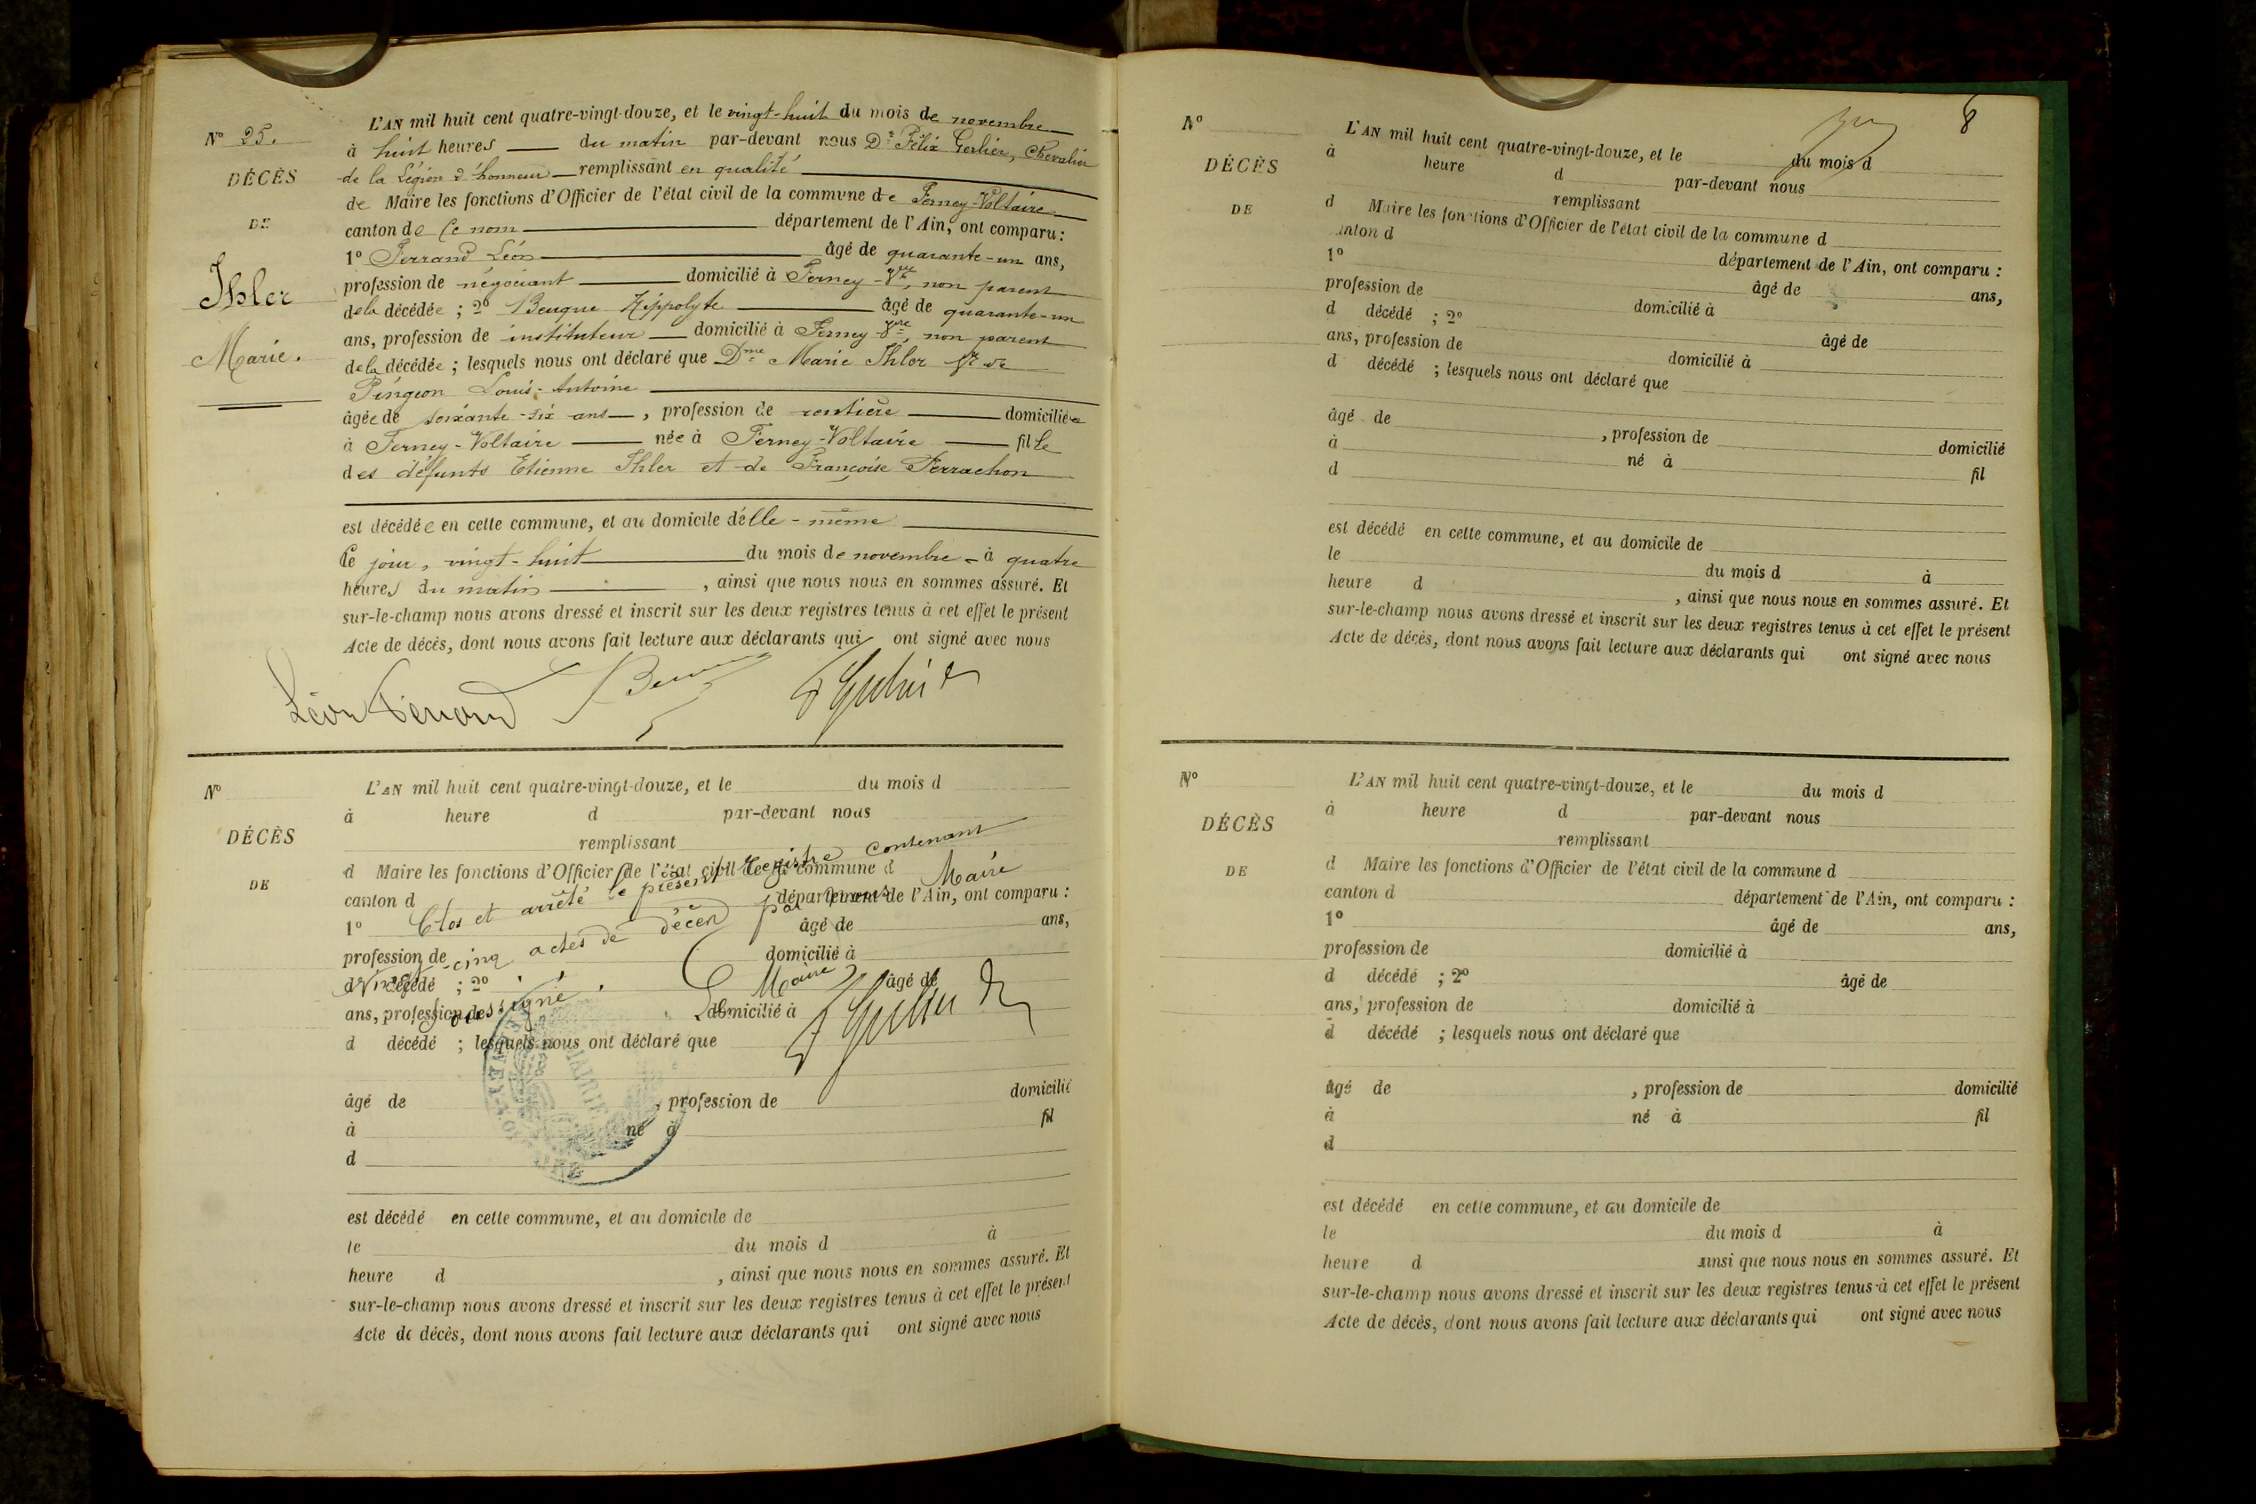 N° 25.
DÉCÈS
DE
Ihler
Marie.
L'AN mil huit cent quatre-vingt-douze, et le vingt-huit du mois de novembre
à huit heures du matin par-devant nous Dr Félix Gerlier, Chevalier
de la Légion d'honneur remplissant en qualité
de Maire les fonctions d'Officier de l'état civil de la commune de Ferney-Voltaire
canton de Ce nom département de l'Ain, ont comparu :
1° Ferrand Léon âgé de quarante-un ans,
profession de négociant domicilié à Ferney-Vre, non parent
de la décédée ; 2° Beuque Hippolyte âgé de quarante-un
ans, profession de instituteur domicilié à Ferney-Vre, non parent
de la décédée ; lesquels nous ont déclaré que Dme Marie Ihler Ve de
Pingeon Louis-Antoine
âgée de soixante-six ans, profession de rentière domiciliée
à Ferney-Voltaire née à Ferney-Voltaire fille
des défunts Etienne Ihler et de Françoise Perrachon
est décédée en cette commune, et au domicile d'elle-même
Ce jour, vingt-huit du mois de novembre à quatre
heures du matin, ainsi que nous nous en sommes assuré. Et
sur-le-champ nous avons dressé et inscrit sur les deux registres tenus à cet effet le présent
Acte de décès, dont nous avons fait lecture aux déclarants qui ont signé avec nous
Léon Ferrand
F Gerlier
N°
DÉCÈS
DE
L'AN mil huit cent quatre-vingt-douze, et le du mois d
à heure d par-devant nous
remplissant
d Maire les fonctions d'Officier de l'état civil de la commune d
canton d département de l'Ain, ont comparu :
1° âgé de ans,
profession de domicilié à
d décédé ; 2° âgé de
ans, profession de domicilié à
d décédé ; lesquels nous ont déclaré que
Clos et arrêté le présent Registre contenant
Vingt-cinq actes de décès par nous Maire
soussigné.
Le Maire
F Gerlier
MAIRIE
âgé de , profession de domicilié
à né à fil
d
est décédé en cette commune, et au domicile de
le du mois d à
heure d , ainsi que nous nous en sommes assuré. Et
sur-le-champ nous avons dressé et inscrit sur les deux registres tenus à cet effet le présent
Acte de décès, dont nous avons fait lecture aux déclarants qui ont signé avec nous
8
N°
DÉCÈS
DE
L'AN mil huit cent quatre-vingt-douze, et le du mois d
à heure d par-devant nous
remplissant
d Maire les fonctions d'Officier de l'état civil de la commune d
canton d département de l'Ain, ont comparu :
1° âgé de ans,
profession de domicilié à
d décédé ; 2° âgé de
ans, profession de domicilié à
d décédé ; lesquels nous ont déclaré que
âgé de , profession de domicilié
à né à fil
d
est décédé en cette commune, et au domicile de
le du mois d à
heure d , ainsi que nous nous en sommes assuré. Et
sur-le-champ nous avons dressé et inscrit sur les deux registres tenus à cet effet le présent
Acte de décès, dont nous avons fait lecture aux déclarants qui ont signé avec nous
N°
DÉCÈS
DE
L'AN mil huit cent quatre-vingt-douze, et le du mois d
à heure d par-devant nous
remplissant
d Maire les fonctions d'Officier de l'état civil de la commune d
canton d département de l'Ain, ont comparu :
1° âgé de ans,
profession de domicilié à
d décédé ; 2° âgé de
ans, profession de domicilié à
d décédé ; lesquels nous ont déclaré que
âgé de , profession de domicilié
à né à fil
d
est décédé en cette commune, et au domicile de
le du mois d à
heure d ainsi que nous nous en sommes assuré. Et
sur-le-champ nous avons dressé et inscrit sur les deux registres tenus à cet effet le présent
Acte de décès, dont nous avons fait lecture aux déclarants qui ont signé avec nous